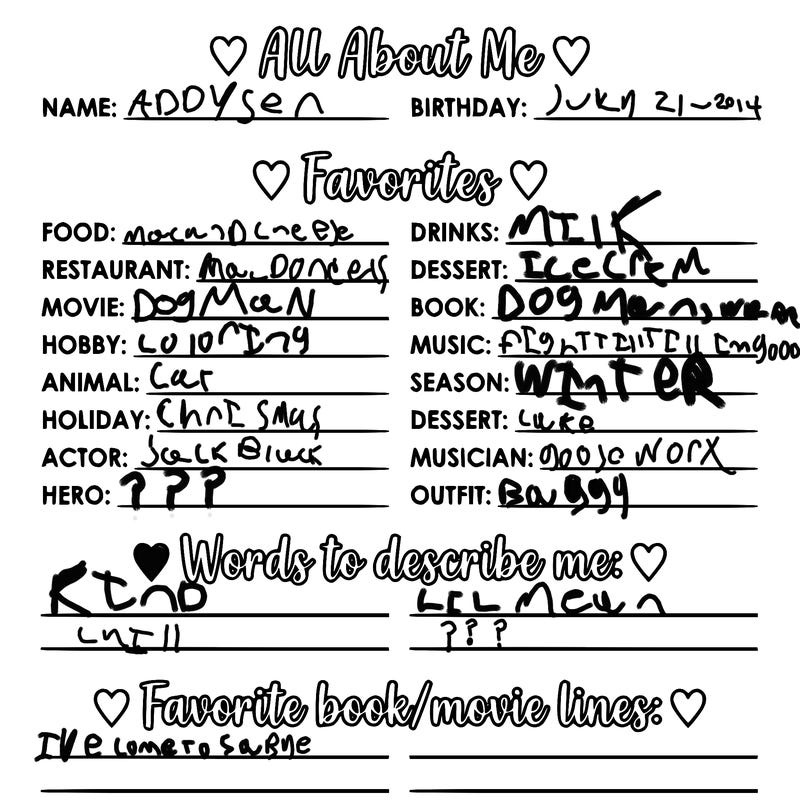 All About Me
NAME: ADDYSen BIRTHDAY: JUKY 21-2014
Favorites
FOOD: macanDcheese DRINKS: MIlK
RESTAURANT: MacDoncels DESSERT: IceCreM
MOVIE: DogMaN BOOK: DOg Man
HOBBY: coloring MUSIC:
ANIMAL: Cat SEASON: WInTER
HOLIDAY: ChrISMas DESSERT: cake
ACTOR: JacK Black MUSICIAN: goose WorX
HERO: ??? OUTFIT: Baggy
Words to describe me:
KInD LIL Mean
chIll ???
Favorite book/movie lines:
I'Ve come To